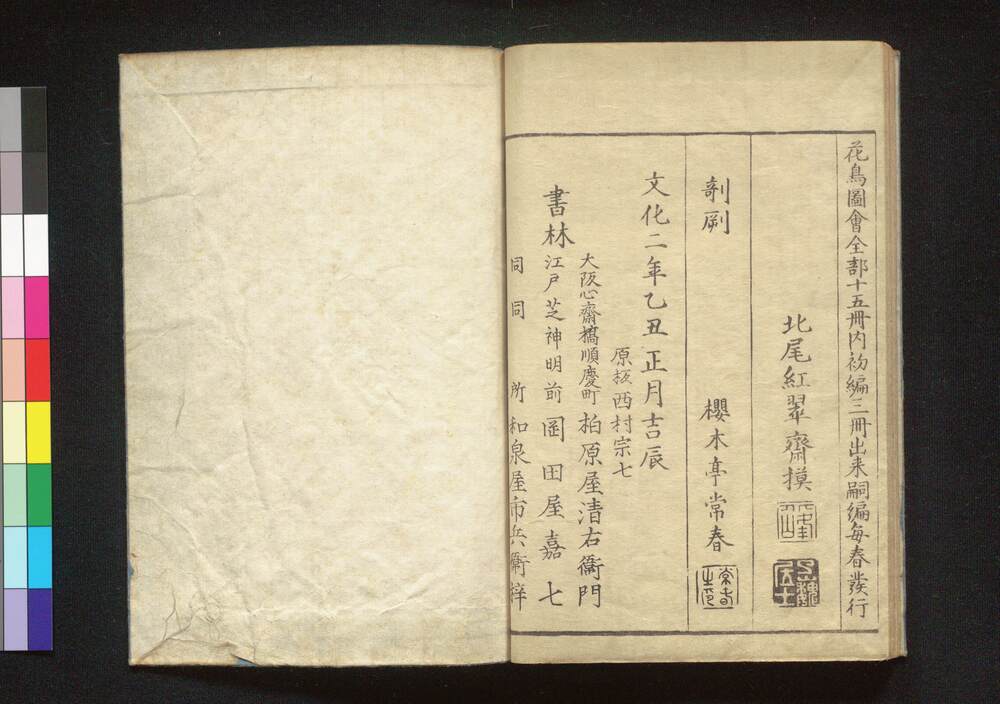 花鳥圖會全部十五冊内初編三冊出来嗣編毎春發行
北尾紅翠齋摸
剞劂 櫻木亭常春
文化二年乙丑正月吉辰
原板西村宗七
書林
大阪心齋橋順慶町 柏原屋清右衞門
江戸芝神明前 岡田屋嘉七
同同所 和泉屋市兵衞梓